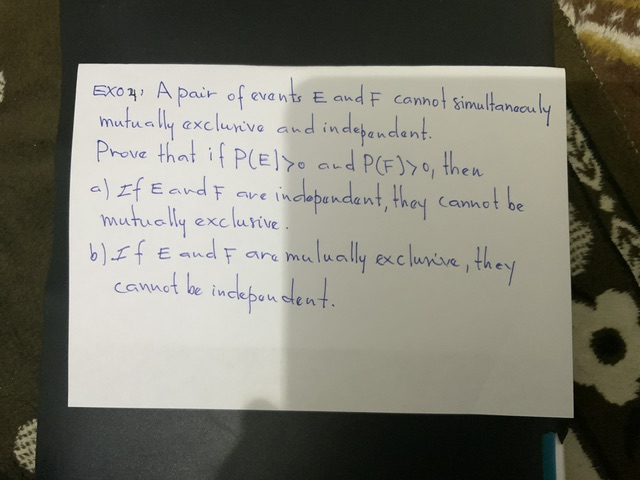 EXO4: A pair of events E and F cannot simultaneouly
mutually exclusive and independent.
Prove that if P(E)>0 and P(F)>0, then
a) If E and F are independent, they cannot be
mutually exclusive.
b) If E and F are mulually exclusive, they
cannot be independent.